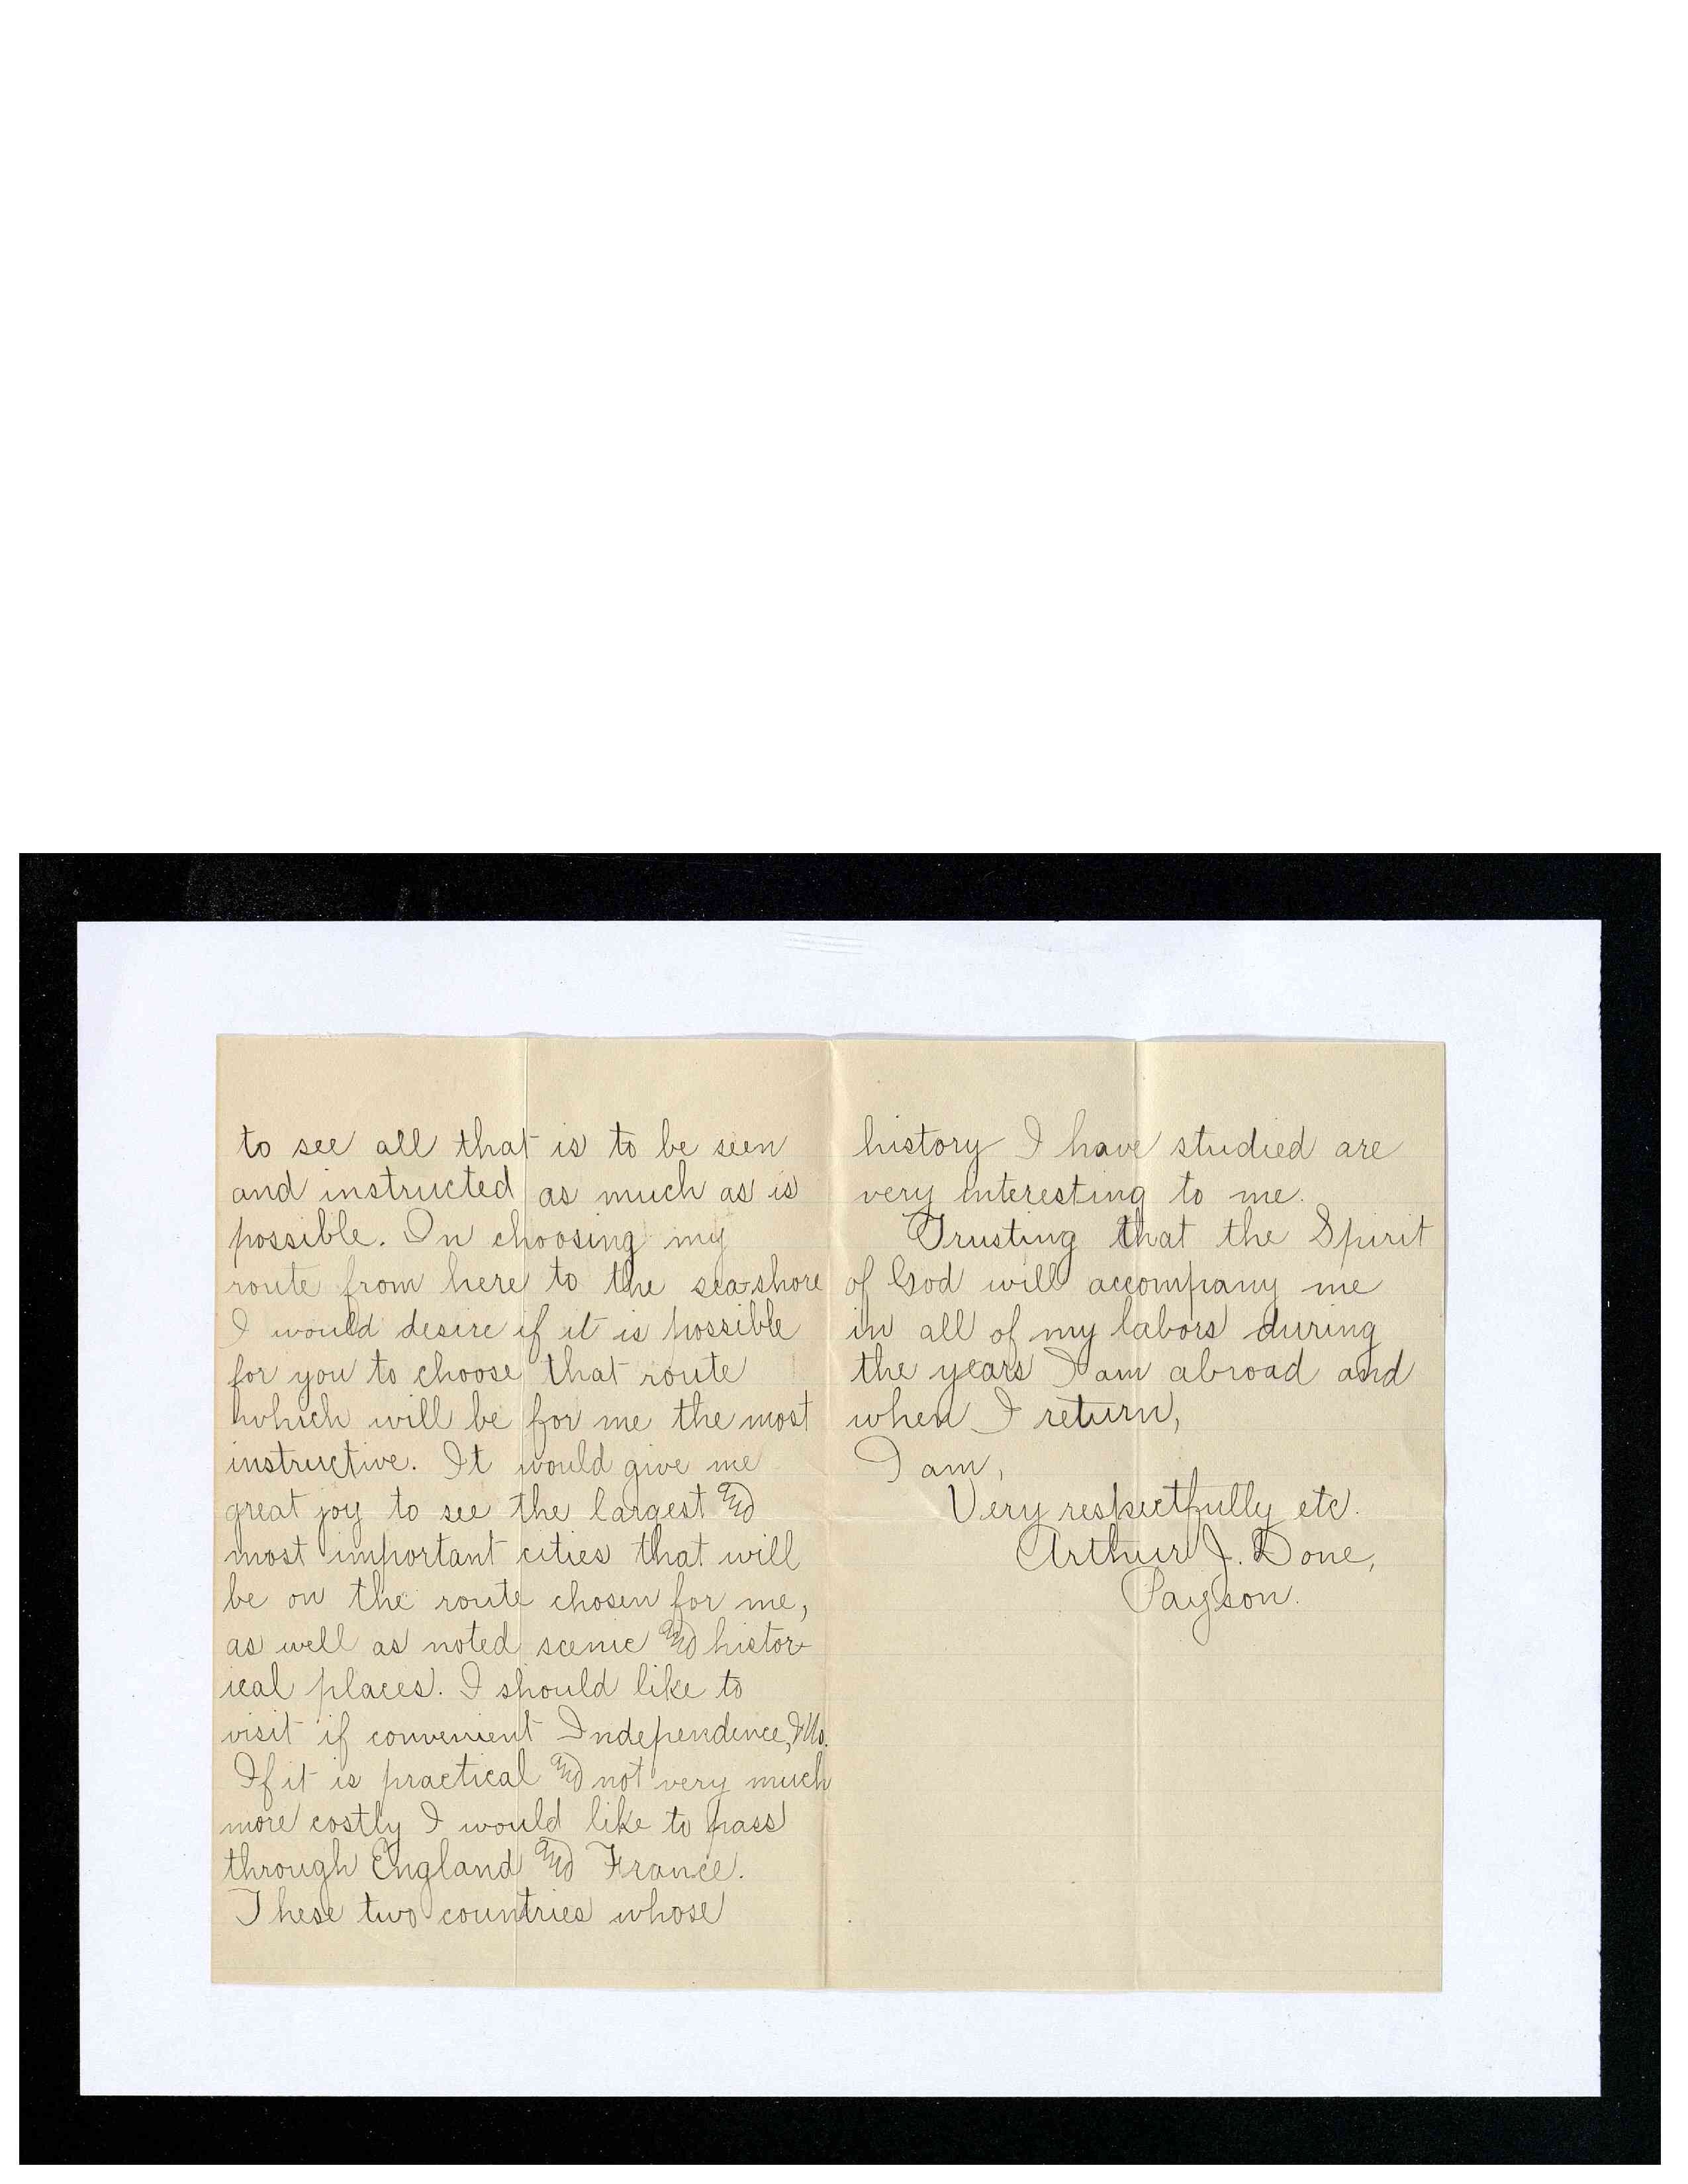 to see all that is to be seen
and instructed as much as is
possible. In choosing my
route from here to the sea-shore
I would desire if it is possible
for you to choose that route
which will be for me the most
instructive. It would give me
great joy to see the largest and
most important cities that will
be on the route chosen for me,
as well as noted scenic and histor-
ical places. I should like to
visit if convenient Independence, Mo.
If it is practical and not very much
more costly I would like to pass
through England and France.
These two countries whose
history I have studied are
very interesting to me.
Trusting that the Spirit
of God will accompany me
in all of my labors during
the years I am abroad and
when I return,
I am,
Very respectfully etc.
Arthur J. Done,
Payson.